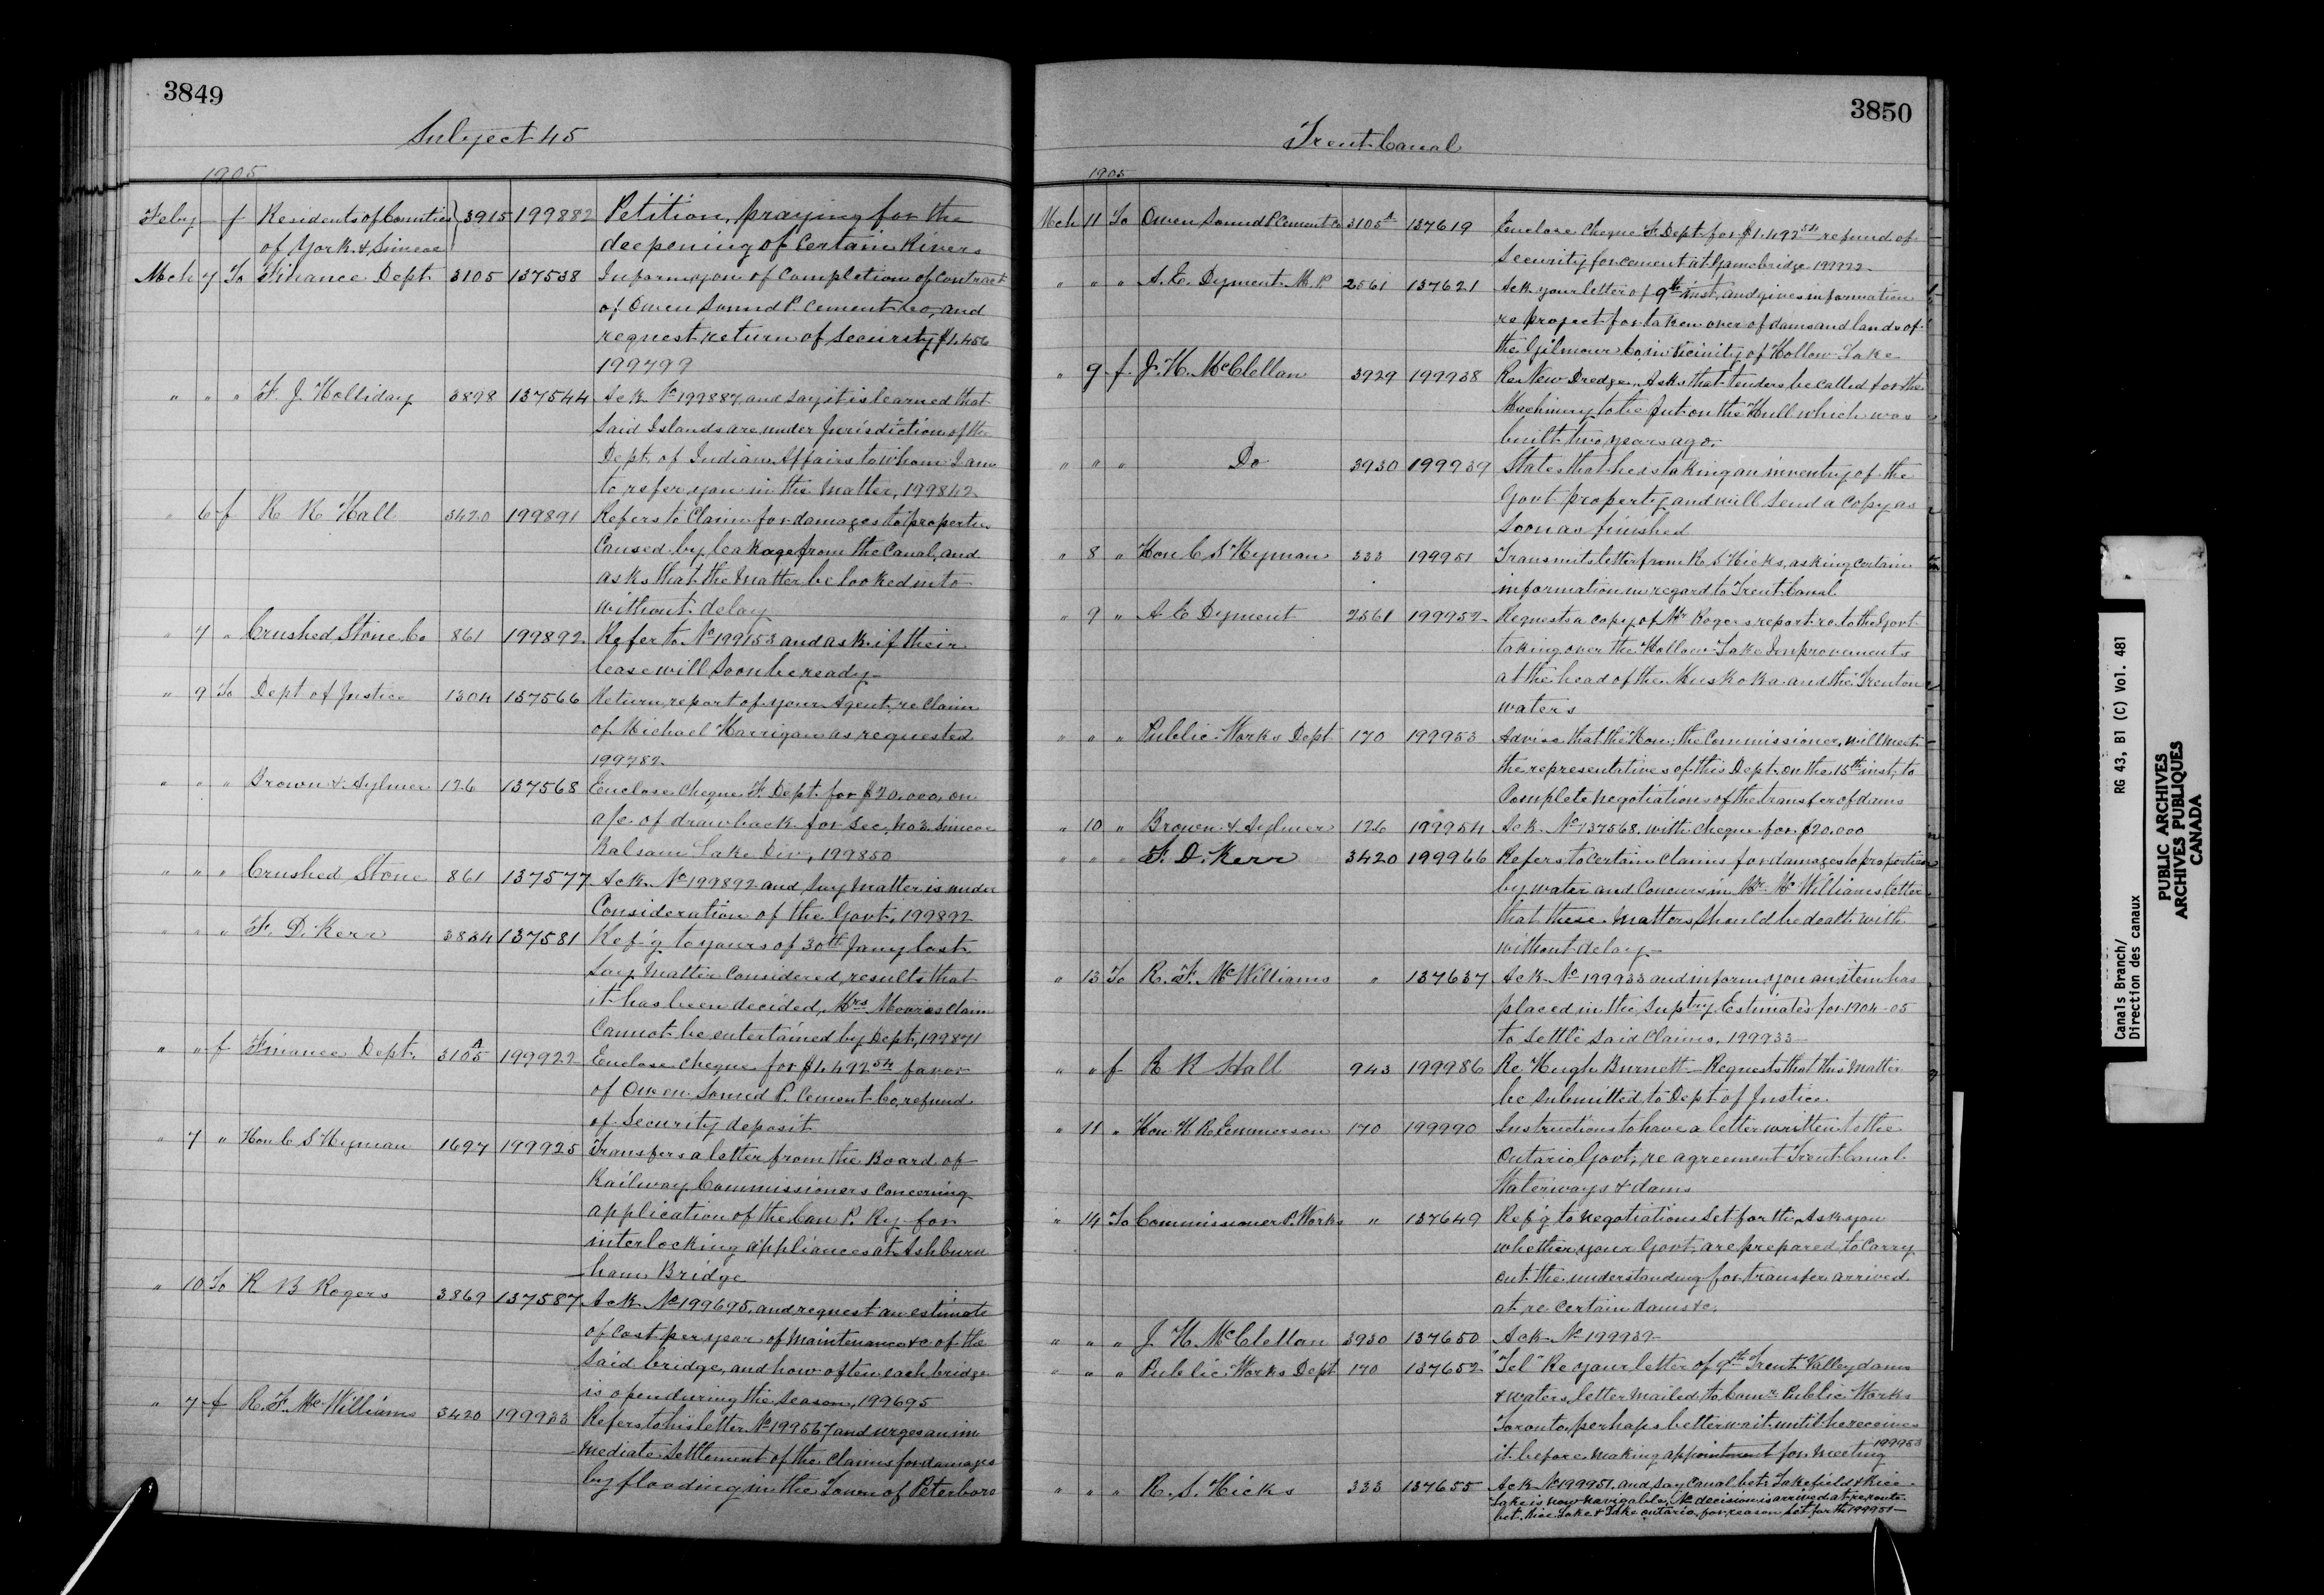 3849
Subject 45
1905
Feby — f Residents of Counties } 3915 199882 Petition, praying for the
of York & Simcoe deepening of certain Rivers
Mch 7 To Finance Dept 3105 137538 Inform you of completion of contract
of Owen Sound P. Cement Co, and
request return of security $1.456
199799
" " " F. J. Holliday 3898 137544 Ack No 199887 and say it is learned that
said Islands are under Jurisdiction of the
Dept. of Indian Affairs to whom I am
to refer you in the matter, 199842
" 6 f R R Hall 3420 199891 Refers to Claim for damages to properties
Caused by leakage from the Canal, and
asks that the matter be looked into
without delay
" 7 " Crushed Stone Co 861 199892 Refer to No 199153 and ask if their
lease will soon be ready
" 9 To Dept of Justice 1304 137566 Return report of your Agent re Claim
of Michael Harrigan as requested
199782
" " " Brown & Aylmer 126 137568 Enclose Cheque F. Dept. for $20.000 on
a/c of drawback for Sec. No 2. Simcoe
Balsam Lake Div, 199850
" " " Crushed Stone 861 137577 Ack No 199892 and say matter is under
Consideration of the Govt, 199892
" " " F. D. Kerr 3834 137581 Ref'g to yours of 30th Jany last
say matter considered, results that
it has been decided, Mrs Morris Claim
Cannot be entertained by Dept, 199871
" " f Finance Dept. 3105 A 199922 Enclose cheque for $1.492 54 favor
of Owen Sound P. Cement Co, refund
of Security deposit
" 7 " Hon C S Hyman 1697 199925 Transfers a letter from the Board of
Railway Commissioners concerning
application of the Can P. Ry for
interlocking appliances at Ashburn
ham Bridge
" 10 To R B Rogers 3869 137587 Ack No 199695, and request an estimate
of cost per year of maintenance &c of the
said bridge, and how often each bridge
is open during the season, 199695
" 7 f R. F. McWilliams 3420 199933 Refers to his letter No 199567 and urges an im
mediate settlement of the Claims for damages
by flooding in the Town of Peterboro
3850
Trent Canal
1905
Mch 11 To Owen Sound P Cement Co 3105 A 137619 Enclose Cheque F. Dept. for $1.492 54 refund of
Security for cement at Gamebridge 199922
" " " A. E. Dyment M. P 2561 137621 Ack your letter of 9th inst, and gives information
re project for taken over of dams and lands of
the Gilmour Co in vicinity of Hollow Lake
" 9 f J. H. McClellan 3929 199938 Re New Dredge, Asks that tenders be called for the
Machinery to be put on the Hull which was
built two years ago.
" " " Do 3930 199939 States that he is taking an inventry of the
Govt property and will send a copy as
soon as finished
" 8 " Hon C S Hyman 333 199951 Transmits letter from R S Hicks, asking certain
information in regard to Trent Canal
" 9 " A E Dyment 2561 199952 Requests a copy of Mr Rogers report re to the Govt
taking over the Hollow Lake Improvements
at the head of the Muskoka and the Trenton
waters
" " " Public Works Dept 170 199953 Advise that the Hon, the Commissioner, will meet
the representatives of this Dept. on the 15th inst, to
Complete negotiations of the transfer of dams
" 10 " Brown & Aylmer 126 199954 Ack No 137568 with cheque for $20.000
" " " F. D. Kerr 3420 199966 Refers to certain claims for damages to properties
by water and concurs in Mr McWilliams letter
that these matters should be dealt with
without delay
" 13 To R. F. McWilliams " 137637 Ack No 199933 and inform you an item has
placed in the Suptry Estimates for 1904-05
to settle said Claims, 199933
" " f R R Hall 943 199986 Re Hugh Burnett – Requests that this matter
be submitted to Dept of Justice
" 11 " Hon H R Emmerson 170 199990 Instructions to have a letter written to the
Ontario Govt, re agreement Trent Canal
Waterways & dams
" 14 To Commissioner P. Works " 137649 Ref'g to negotiations set for the Ask you
whether your Govt, are prepared to carry
out the understanding for transfer arrived
at re certain dams &c,
" " " J. H. McClellan 3930 137650 Ack No 199939
" " " Public Works Dept 170 137652 "Tel" Re your letter of 9th Trent Valley dams
& waters, letter mailed to Comr Public Works
Toronto, perhaps better wait until he receives
it before making appointment for meeting 199953
" " " R. S. Hicks 333 137655 Ack No 199951, and say Canal bet. Lakefield & Rice
Lake is now navigable, No decision is arrived at re route
bet. Rice Lake & Lake Ontario, for reason set forth 199951
Canals Branch/
Direction des canaux
RG 43, B1 (C) Vol. 481
PUBLIC ARCHIVES
ARCHIVES PUBLIQUES
CANADA